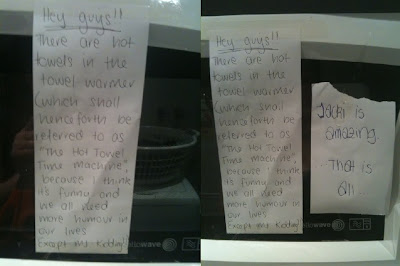 Hey guys!!
There are hot
towels in the
towel warmer
(which shall
henceforth be
referred to as
"The Hot Towel
Time Machine",
because I think
it's funny and
we all need
more humour in
our lives
Except Ms Kidding)
Hey guys!!
There are hot
towels in the
towel warmer
(which shall
henceforth be
referred to as
"The Hot Towel
Time Machine",
because I think
it's funny and
we all need
more humour in
our lives
Except Ms Kidding)
Jacki is
amazing.
That is
all.
icowave